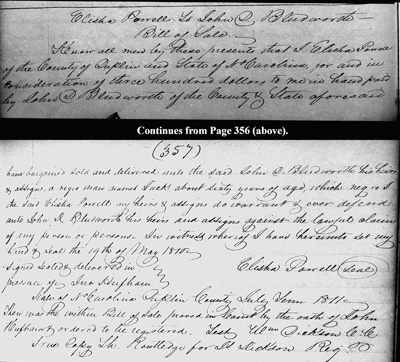 Elisha Powell To John D Bludworth
Bill of Sale
Know all men by these presents that I Elisha Powell
of the County of Duplin and State of N Carolina, for and in
consideration of three hundred dollars to me in hand paid
by John D Bludworth of the County & State aforesaid
Continues from Page 356 (above).
(357)
have bargained sold and delivered unto the said John D. Bludworth his heirs
& assigns, a negro man named about sixty years of age, which negro I
the said Elisha Powell my heirs & assigns do warrant & ever defend
unto John D. Bludworth his heirs and assigns against the lawful claim
of any person or persons. In witness whereof I have hereunto set my
hand & seal the 19th of May 1810
Signed Sealed & delivered in
presence of Elisha Powell (Seal)
Jno Huffham
State of N Carolina Duplin County July Term 1811
Then was the within Bill of Sale proved in Court by the oath of John
Huffham & ordered to be registered. Test Wm Dickson C.C.
True Copy Routledge for Dickson Regr